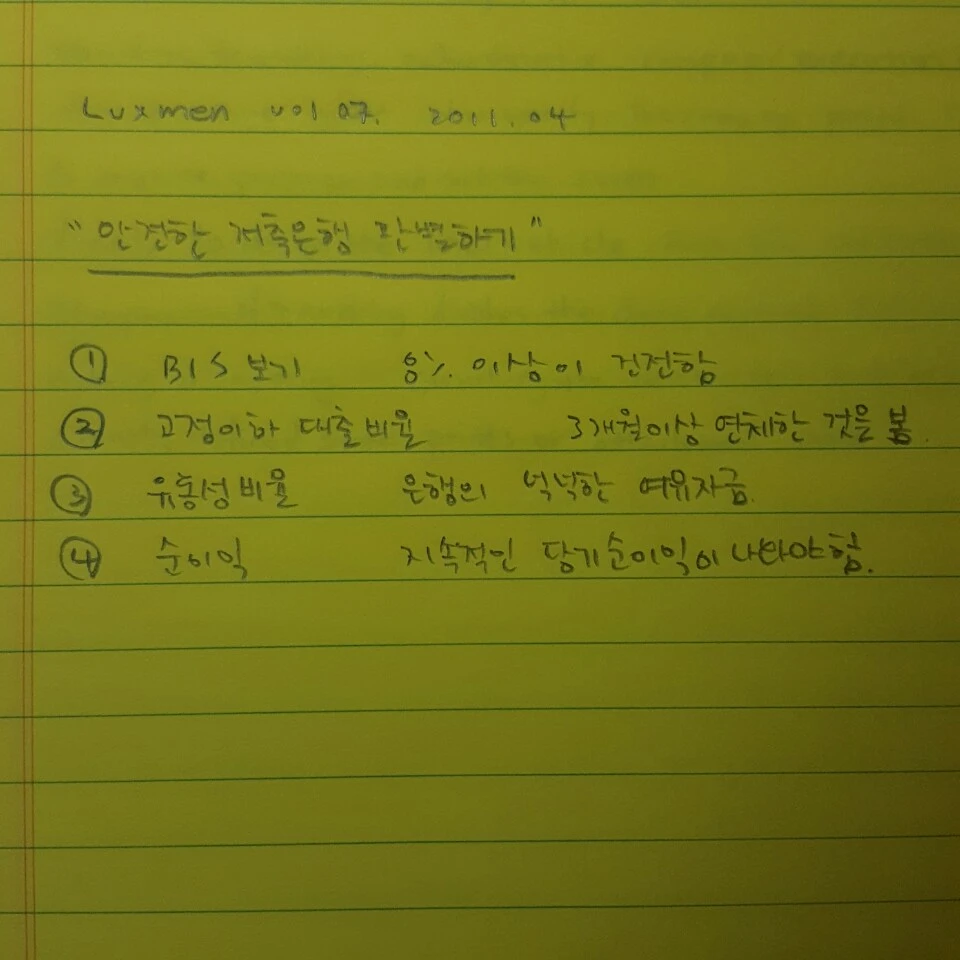 Luxmen vol 07. 2011.04
"안전한 저축은행 판별하기"
① BIS 보기 8% 이상이 건전함
② 고정이하 대출비율 3개월이상 연체한 것을 봄.
③ 유동성비율 은행의 넉넉한 여유자금.
④ 순이익 지속적인 당기순이익이 나와야함.